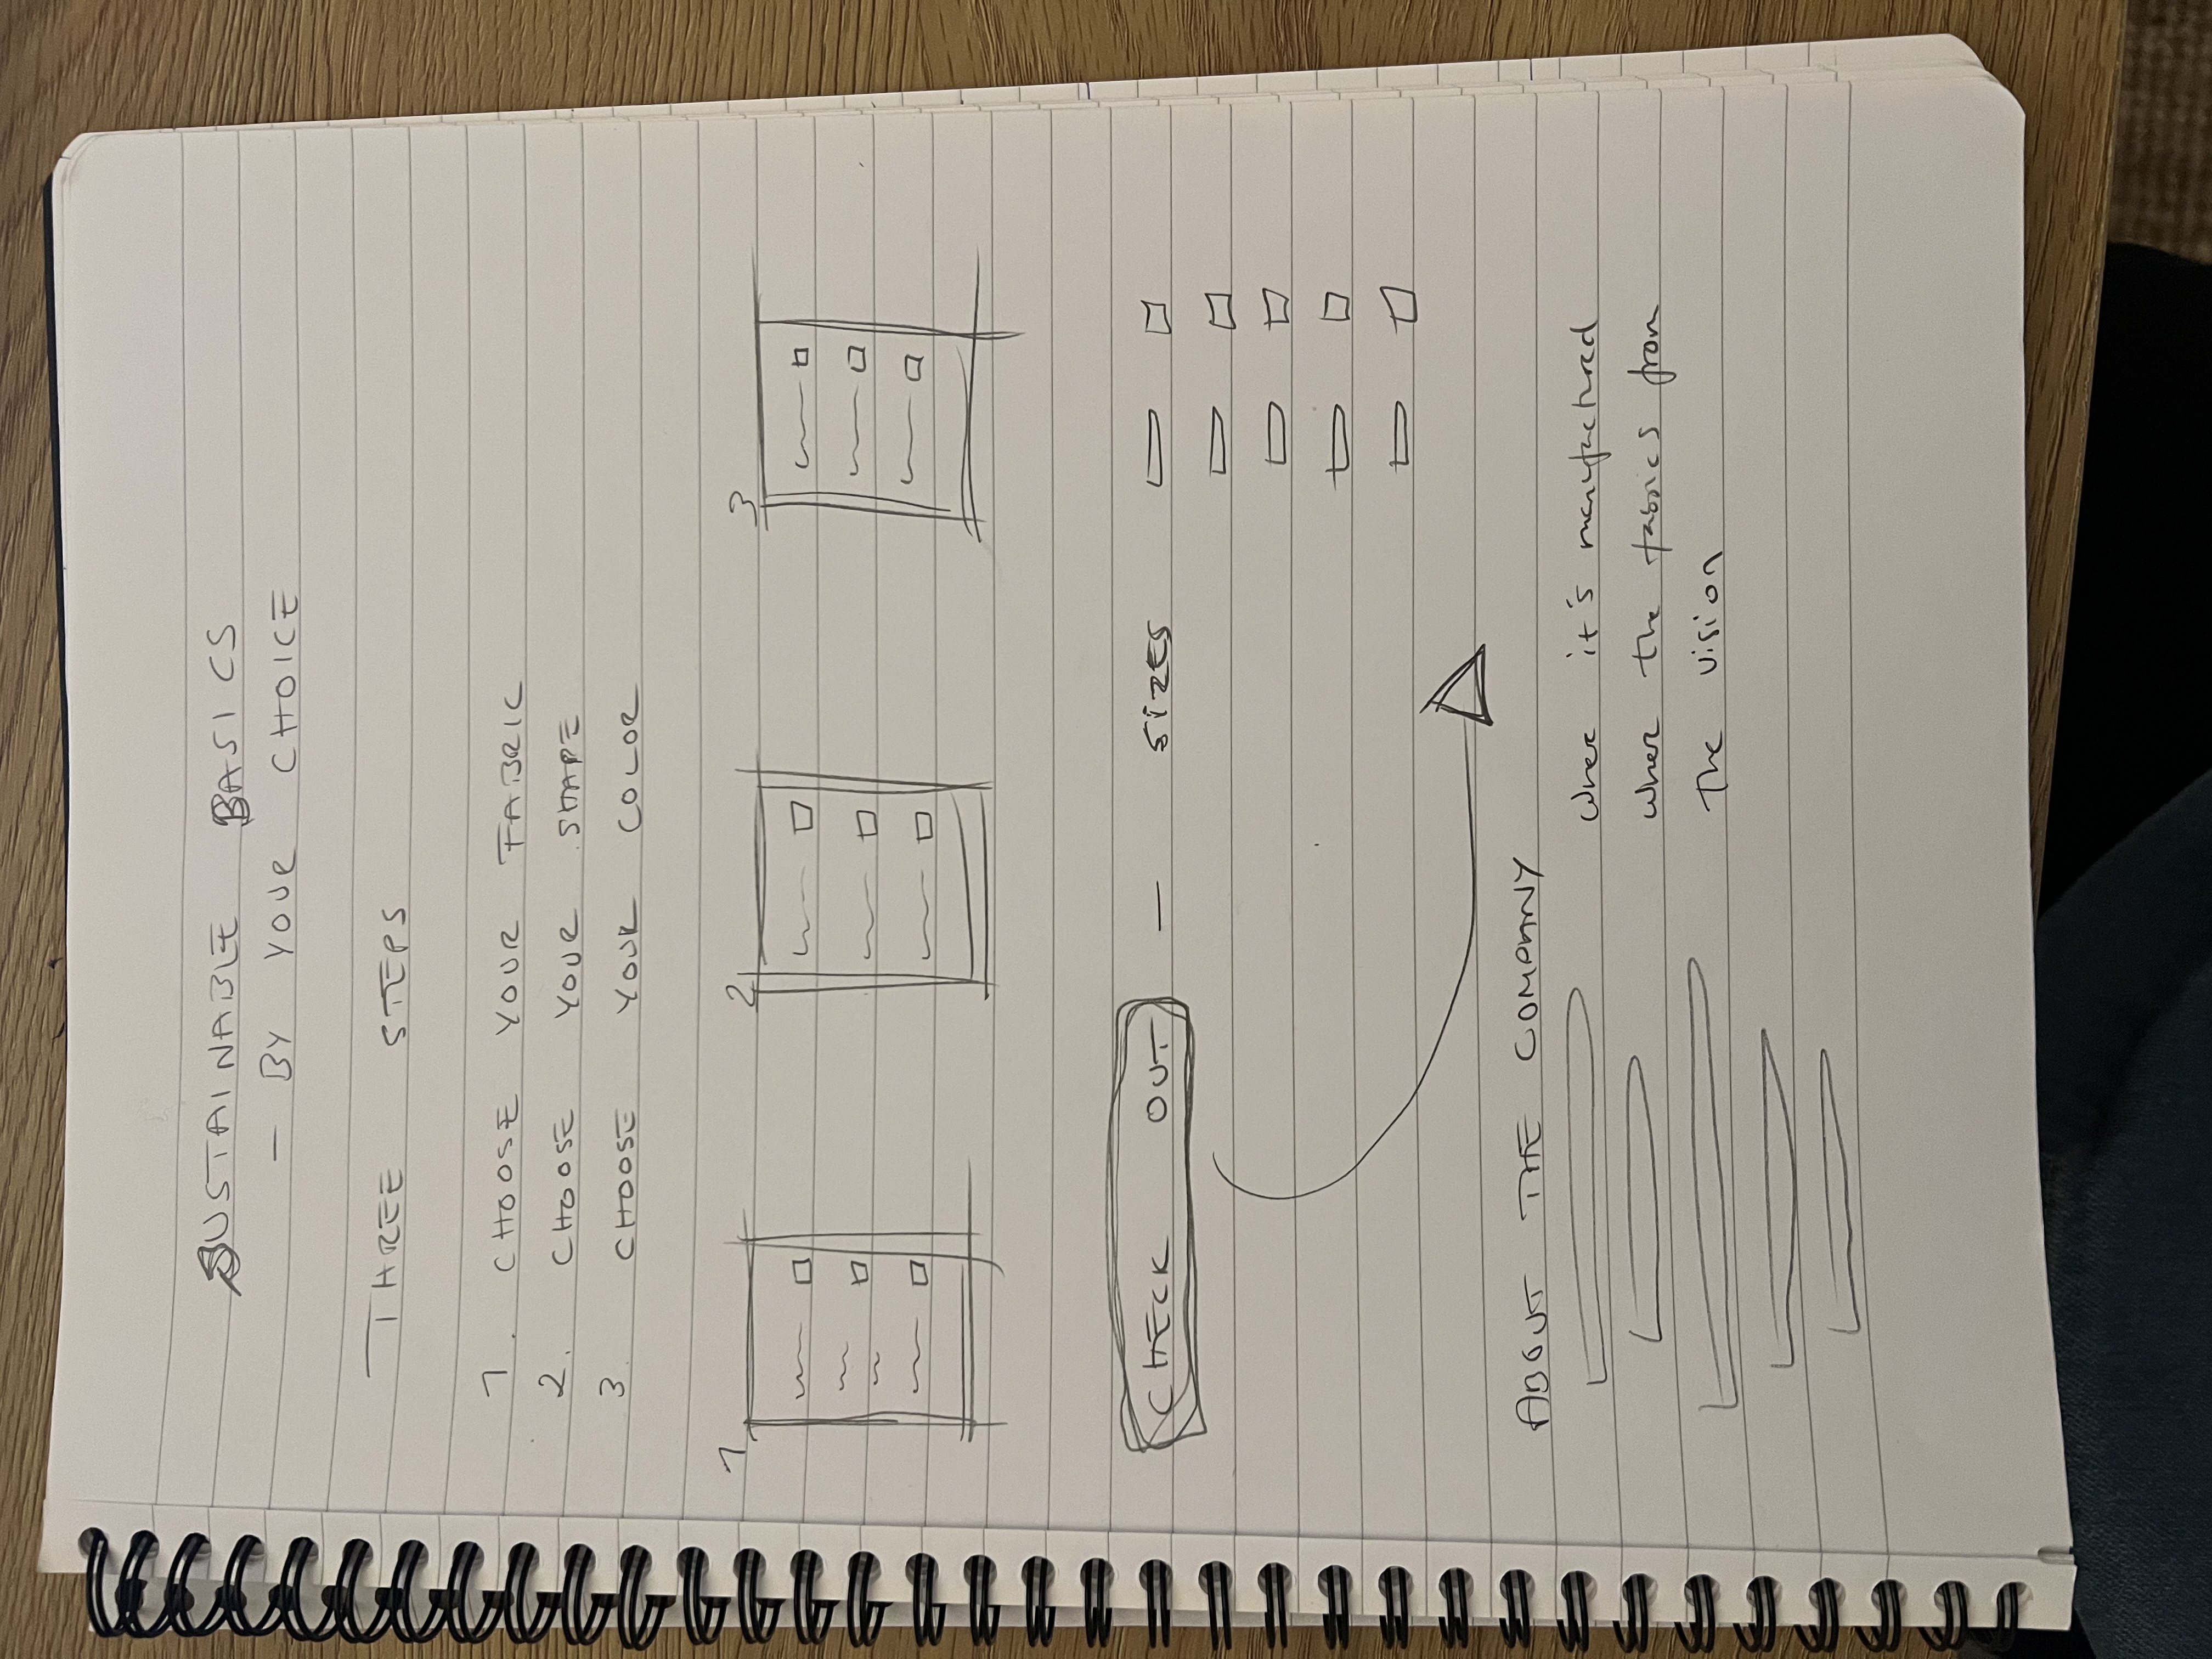 SUSTAINABLE BASICS
— BY YOUR CHOICE
THREE STEPS
1. CHOOSE YOUR FABRIC
2. CHOOSE YOUR SHAPE
3. CHOOSE YOUR COLOR
1 2 3
CHECK OUT — SIZES
ABOUT THE COMPANY
where it's manufactured
where the fabrics from
the vision